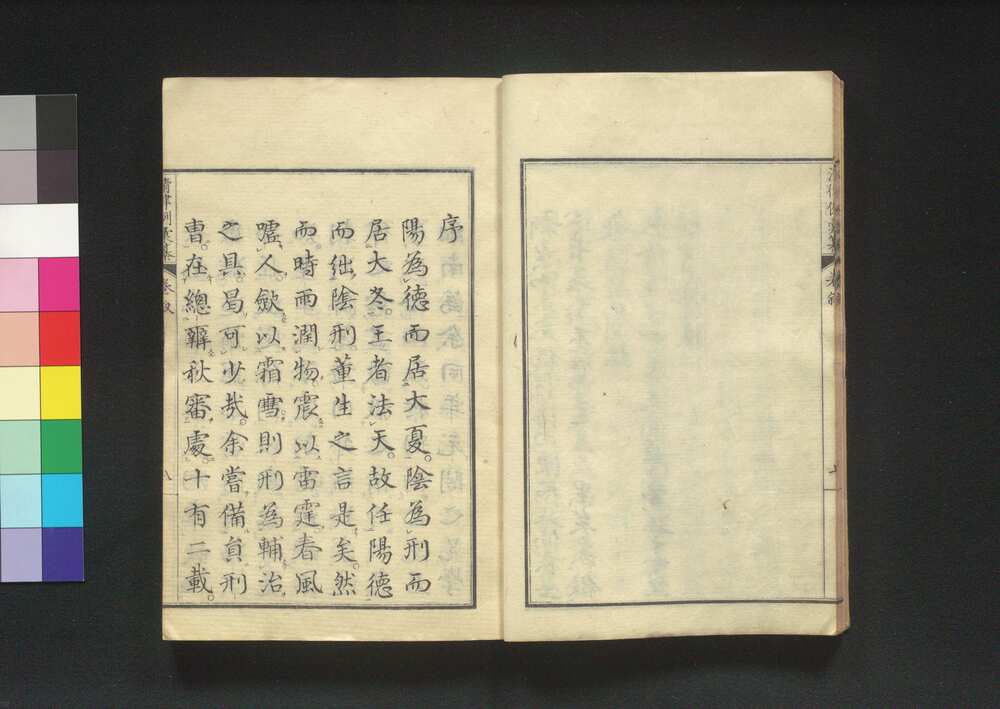 序
陽為德而居大夏。陰為刑而
居大冬。王者法天。故任陽德
而絀陰刑。董生之言是矣。然
而時雨潤物。震以雷霆。春風
噓人。斂以霜雪。則刑為輔治
之具。曷可少哉。余嘗備員刑
曹。在總辦秋審處。十有二載。
清律例彙纂
八